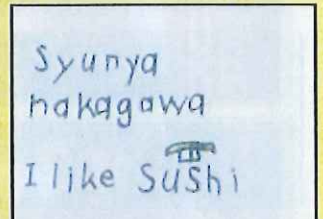 Syunya
nakagawa
I like SuShi